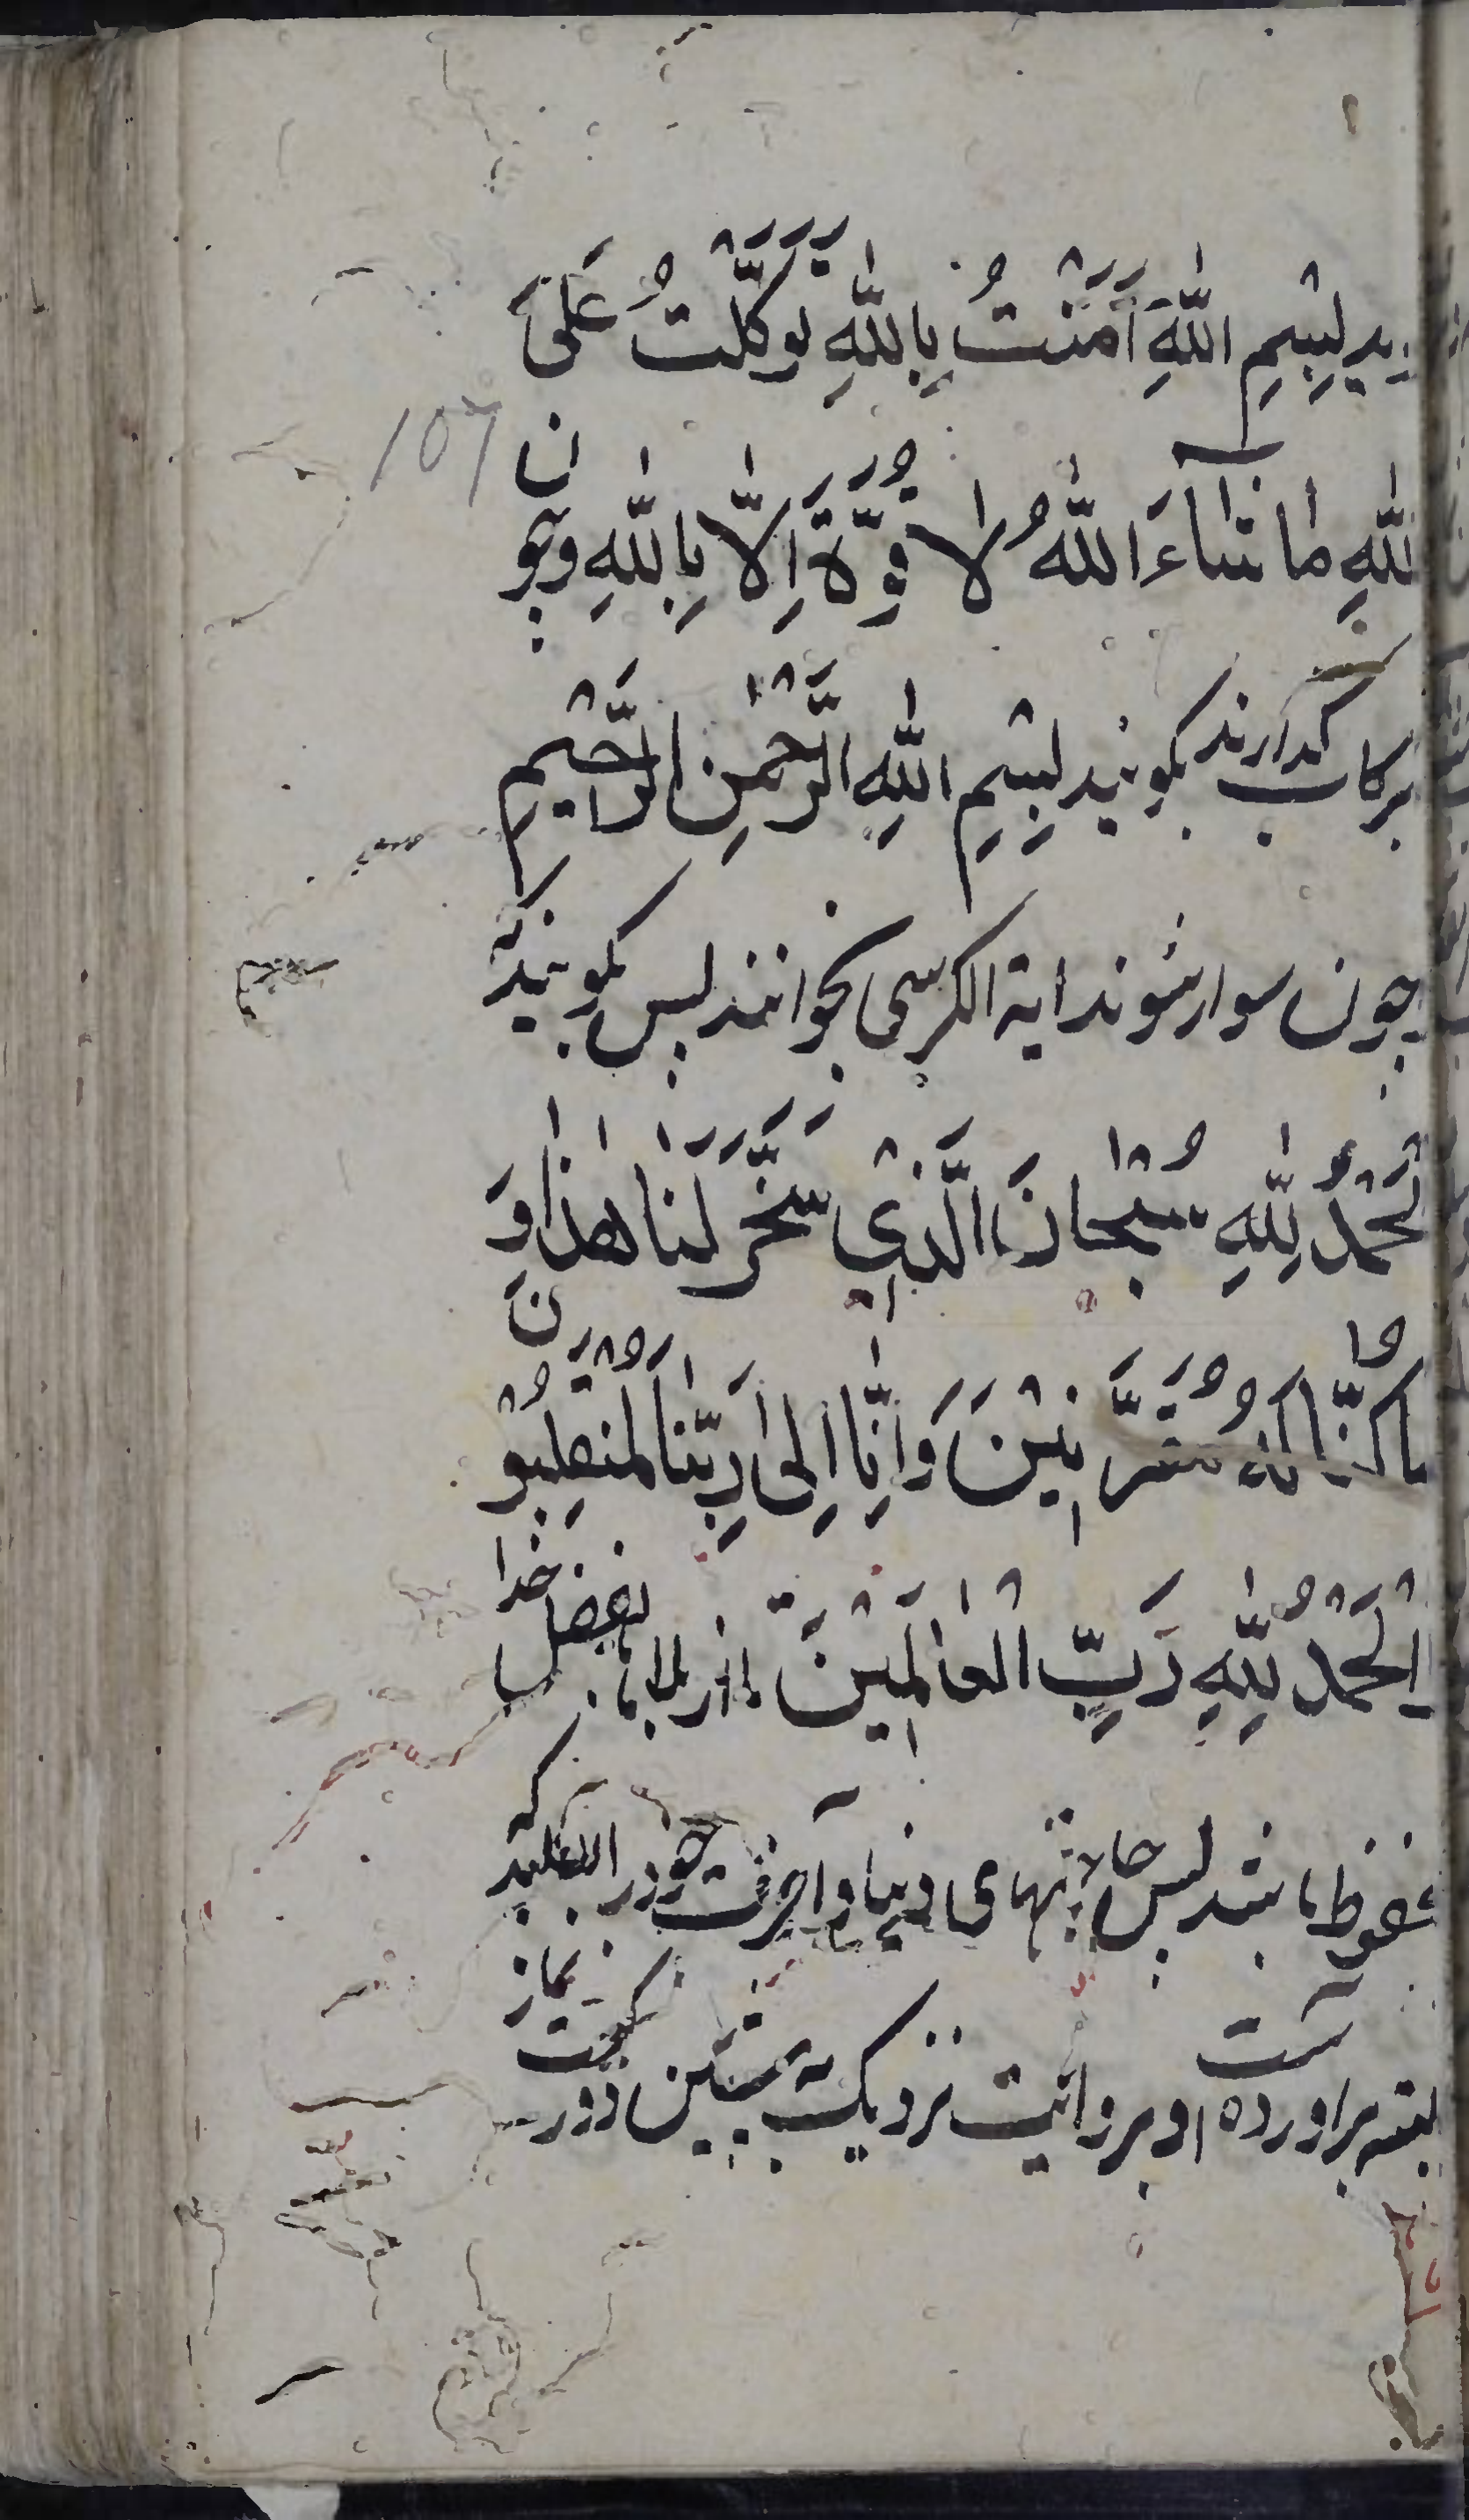 یید بِسْمِ اللّٰهِ آمَنْتُ بِاللّٰهِ تَوَکَّلْتُ عَلَی
اللّٰهِ مٰا شٰآءَ اللّٰهُ لا قُوَّةَ اِلّٰا بِاللّٰهِ وچون
107
برکاب گذارند بگویند بِسْمِ اللّٰهِ الرَّحْمٰنِ الرَّحیْم
چون سوار شوند ایة الکرسی بخوانند پس بگویند که
لْحَمْدُ لِلّٰهِ سُبْحٰانَ الَّذْی سَخَّرَ لَنٰا هٰذٰا وَ
مٰا کُنّٰا لَهُ مُقْرَنیْنَ وَاِنّٰا اِلیٰ رَبِّنٰا لَمُنْقَلِبُوْنَ
اَلْحَمْدُ لِلّٰهِ رَبِّ الْعٰالَمیْنَ از بلاها بفضل خدا
محفوظ باشد پس حاجتهای دنیا و آخرت خود را طلبد که
البته براورده است و بروایت نزدیک بهمین دو رکعت نماز